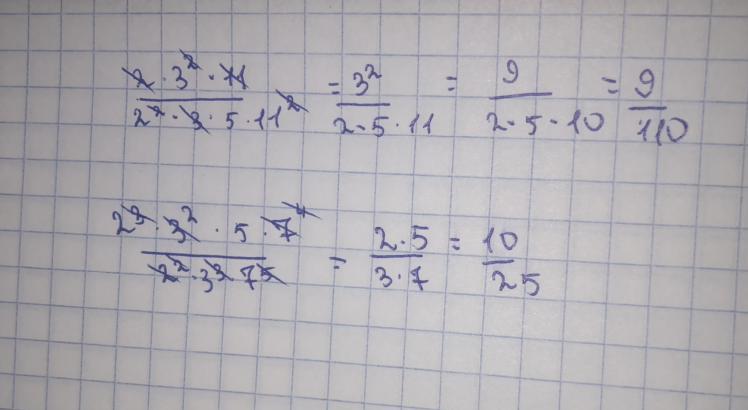 2 · 3² · 11 / 2² · 3 · 5 · 11² = 3² / 2 · 5 · 11 = 9 / 2 · 5 · 10 = 9 / 110
2³ · 3² · 5 · 7⁴ / 2² · 3³ · 7⁵ = 2 · 5 / 3 · 7 = 10 / 25